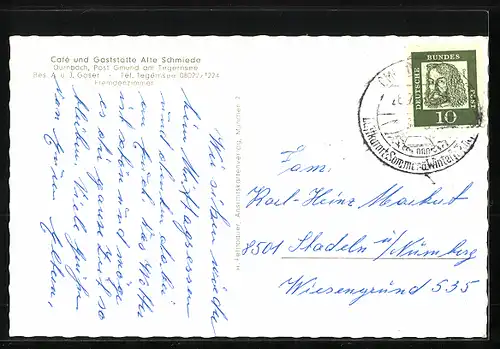 Café und Gaststätte Alte Schmiede
Dürnbach, Post Gmund am Tegernsee
Bes. A. u. J. Goser - Tel. Tegernsee 08022/7224
Fremdenzimmer
Wir sitzen wieder
beim Mittagessen
und denken dabei
an Euch. Das Wetter
ist schön und möge
es die ganze Zeit so
bleiben. Viele Grüße
von Euren Eltern.
Ansichtskartenverlag, München 2
DEUTSCHE BUNDESPOST
10
Luftkurort Sommer- u. Winter
Fam.
Karl-Heinz Markert
8501 Stadeln ü/Nürnberg
Wiesengrund 535